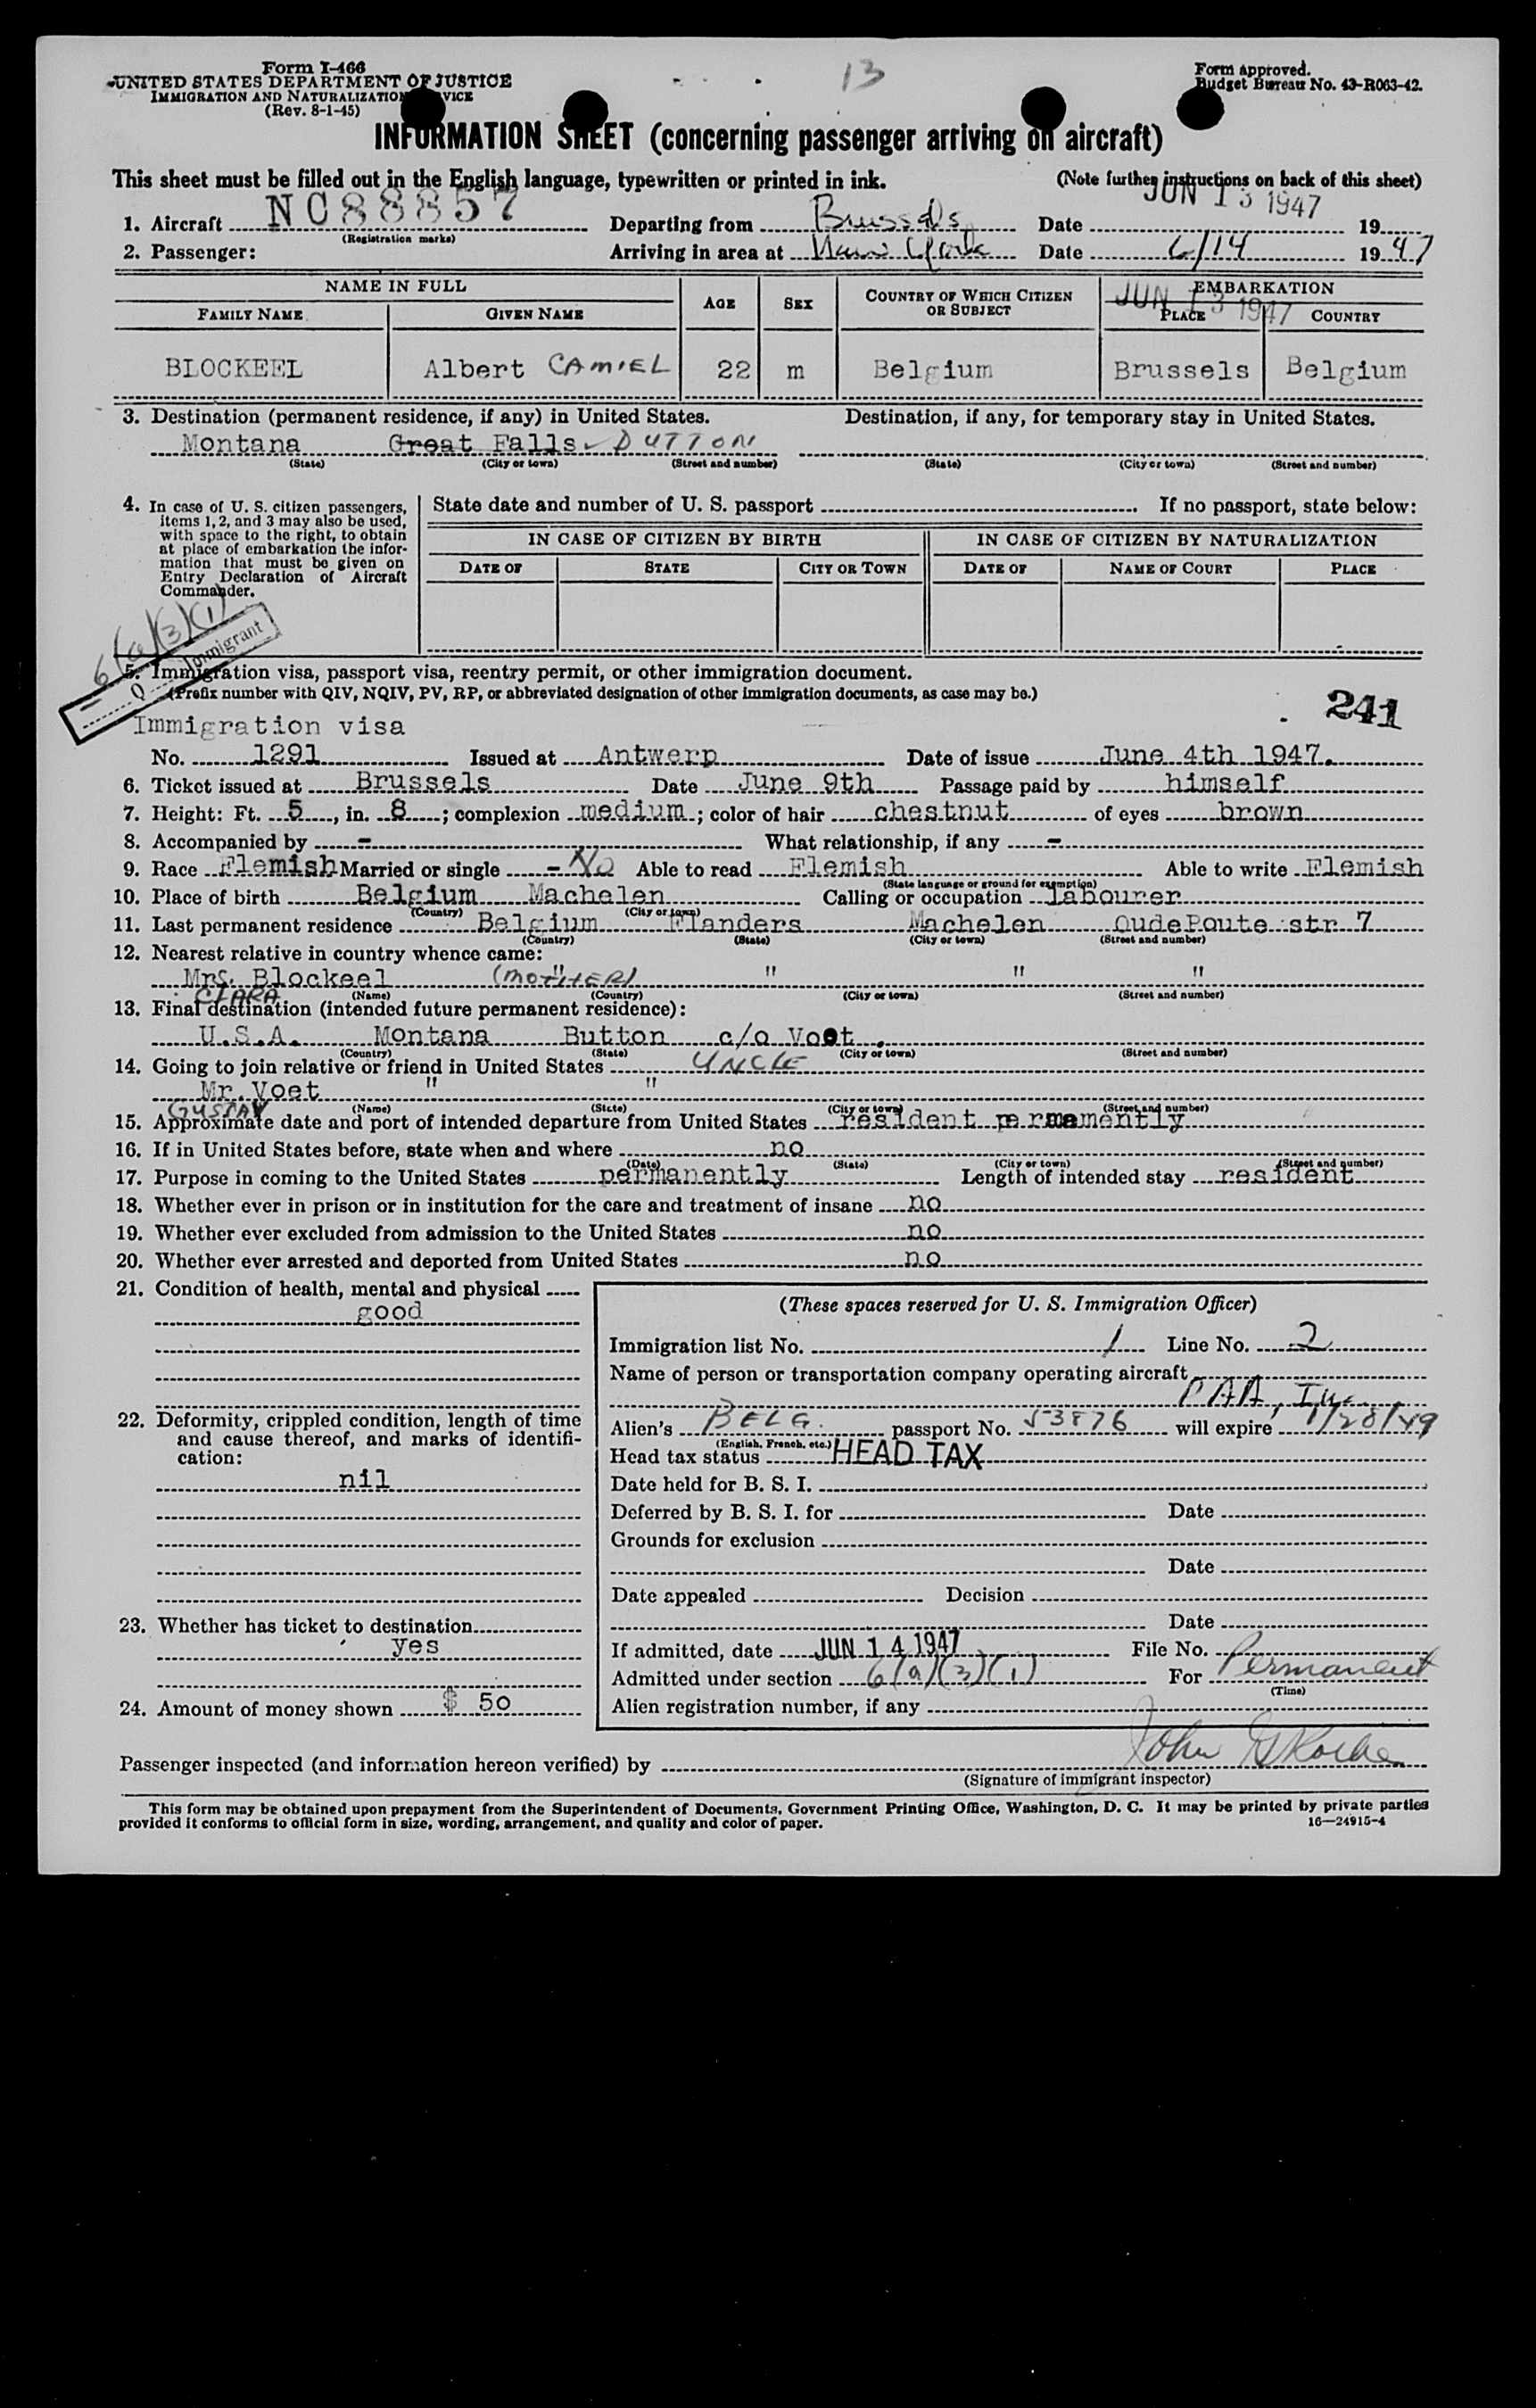 Form I-466
UNITED STATES DEPARTMENT OF JUSTICE
IMMIGRATION AND NATURALIZATION VICE
(Rev. 8-1-45)
13
Form approved.
Budget Bureau No. 43-R063-42.
INFORMATION SHEET (concerning passenger arriving on aircraft)
This sheet must be filled out in the English language, typewritten or printed in ink. (Note further instructions on back of this sheet)
1. Aircraft NC88857 Departing from Brussels Date JUN 13 1947 19
(Registration marks)
2. Passenger: Arriving in area at New York Date 6/14 1947
NAME IN FULL AGE SEX COUNTRY OF WHICH CITIZEN OR SUBJECT EMBARKATION
JUN 13 1947
FAMILY NAME GIVEN NAME PLACE COUNTRY
BLOCKEEL Albert CAMIEL 22 m Belgium Brussels Belgium
3. Destination (permanent residence, if any) in United States. Destination, if any, for temporary stay in United States.
Montana Great Falls DUTTON
(State) (City or town) (Street and number) (State) (City or town) (Street and number)
4. In case of U. S. citizen passengers, items 1, 2, and 3 may also be used, with space to the right, to obtain at place of embarkation the information that must be given on Entry Declaration of Aircraft Commander.
State date and number of U. S. passport If no passport, state below:
IN CASE OF CITIZEN BY BIRTH IN CASE OF CITIZEN BY NATURALIZATION
DATE OF STATE CITY OR TOWN DATE OF NAME OF COURT PLACE
6(a)(3)(1)
Q Immigrant
5. Immigration visa, passport visa, reentry permit, or other immigration document.
(Prefix number with QIV, NQIV, PV, RP, or abbreviated designation of other immigration documents, as case may be.)
241
Immigration visa
No. 1291 Issued at Antwerp Date of issue June 4th 1947.
6. Ticket issued at Brussels Date June 9th Passage paid by himself
7. Height: Ft. 5, in. 8; complexion medium; color of hair chestnut of eyes brown
8. Accompanied by - What relationship, if any -
9. Race Flemish Married or single - No Able to read Flemish Able to write Flemish
(State language or ground for exemption)
10. Place of birth Belgium Machelen Calling or occupation labourer
(Country) (City or town)
11. Last permanent residence Belgium Flanders Machelen OudePoute str 7
(Country) (State) (City or town) (Street and number)
12. Nearest relative in country whence came:
Mrs. Blockeel (MOTHER) " " " "
CLARA (Name) (Country) (City or town) (Street and number)
13. Final destination (intended future permanent residence):
U.S.A. Montana Button c/o Voet.
(Country) (State) (City or town) (Street and number)
14. Going to join relative or friend in United States UNCLE
Mr. Voet " "
GUSTAV (Name) (State) (City or town) (Street and number)
15. Approximate date and port of intended departure from United States resident permanently
16. If in United States before, state when and where no
(Date) (State) (City or town) (Street and number)
17. Purpose in coming to the United States permanently Length of intended stay resident
18. Whether ever in prison or in institution for the care and treatment of insane no
19. Whether ever excluded from admission to the United States no
20. Whether ever arrested and deported from United States no
21. Condition of health, mental and physical
good
22. Deformity, crippled condition, length of time and cause thereof, and marks of identification:
nil
23. Whether has ticket to destination
yes
24. Amount of money shown $ 50
(These spaces reserved for U. S. Immigration Officer)
Immigration list No. 1 Line No. 2
Name of person or transportation company operating aircraft
PAA, Inc.
Alien's BELG. passport No. 53876 will expire 1/28/49
(English, French, etc.)
Head tax status HEAD TAX
Date held for B. S. I.
Deferred by B. S. I. for Date
Grounds for exclusion
Date
Date appealed Decision
Date
If admitted, date JUN 14 1947 File No.
Admitted under section 6(a)(3)(1) For Permanent
(Time)
Alien registration number, if any
Passenger inspected (and information hereon verified) by John
(Signature of immigrant inspector)
This form may be obtained upon prepayment from the Superintendent of Documents, Government Printing Office, Washington, D. C. It may be printed by private parties
provided it conforms to official form in size, wording, arrangement, and quality and color of paper. 16—24915-4